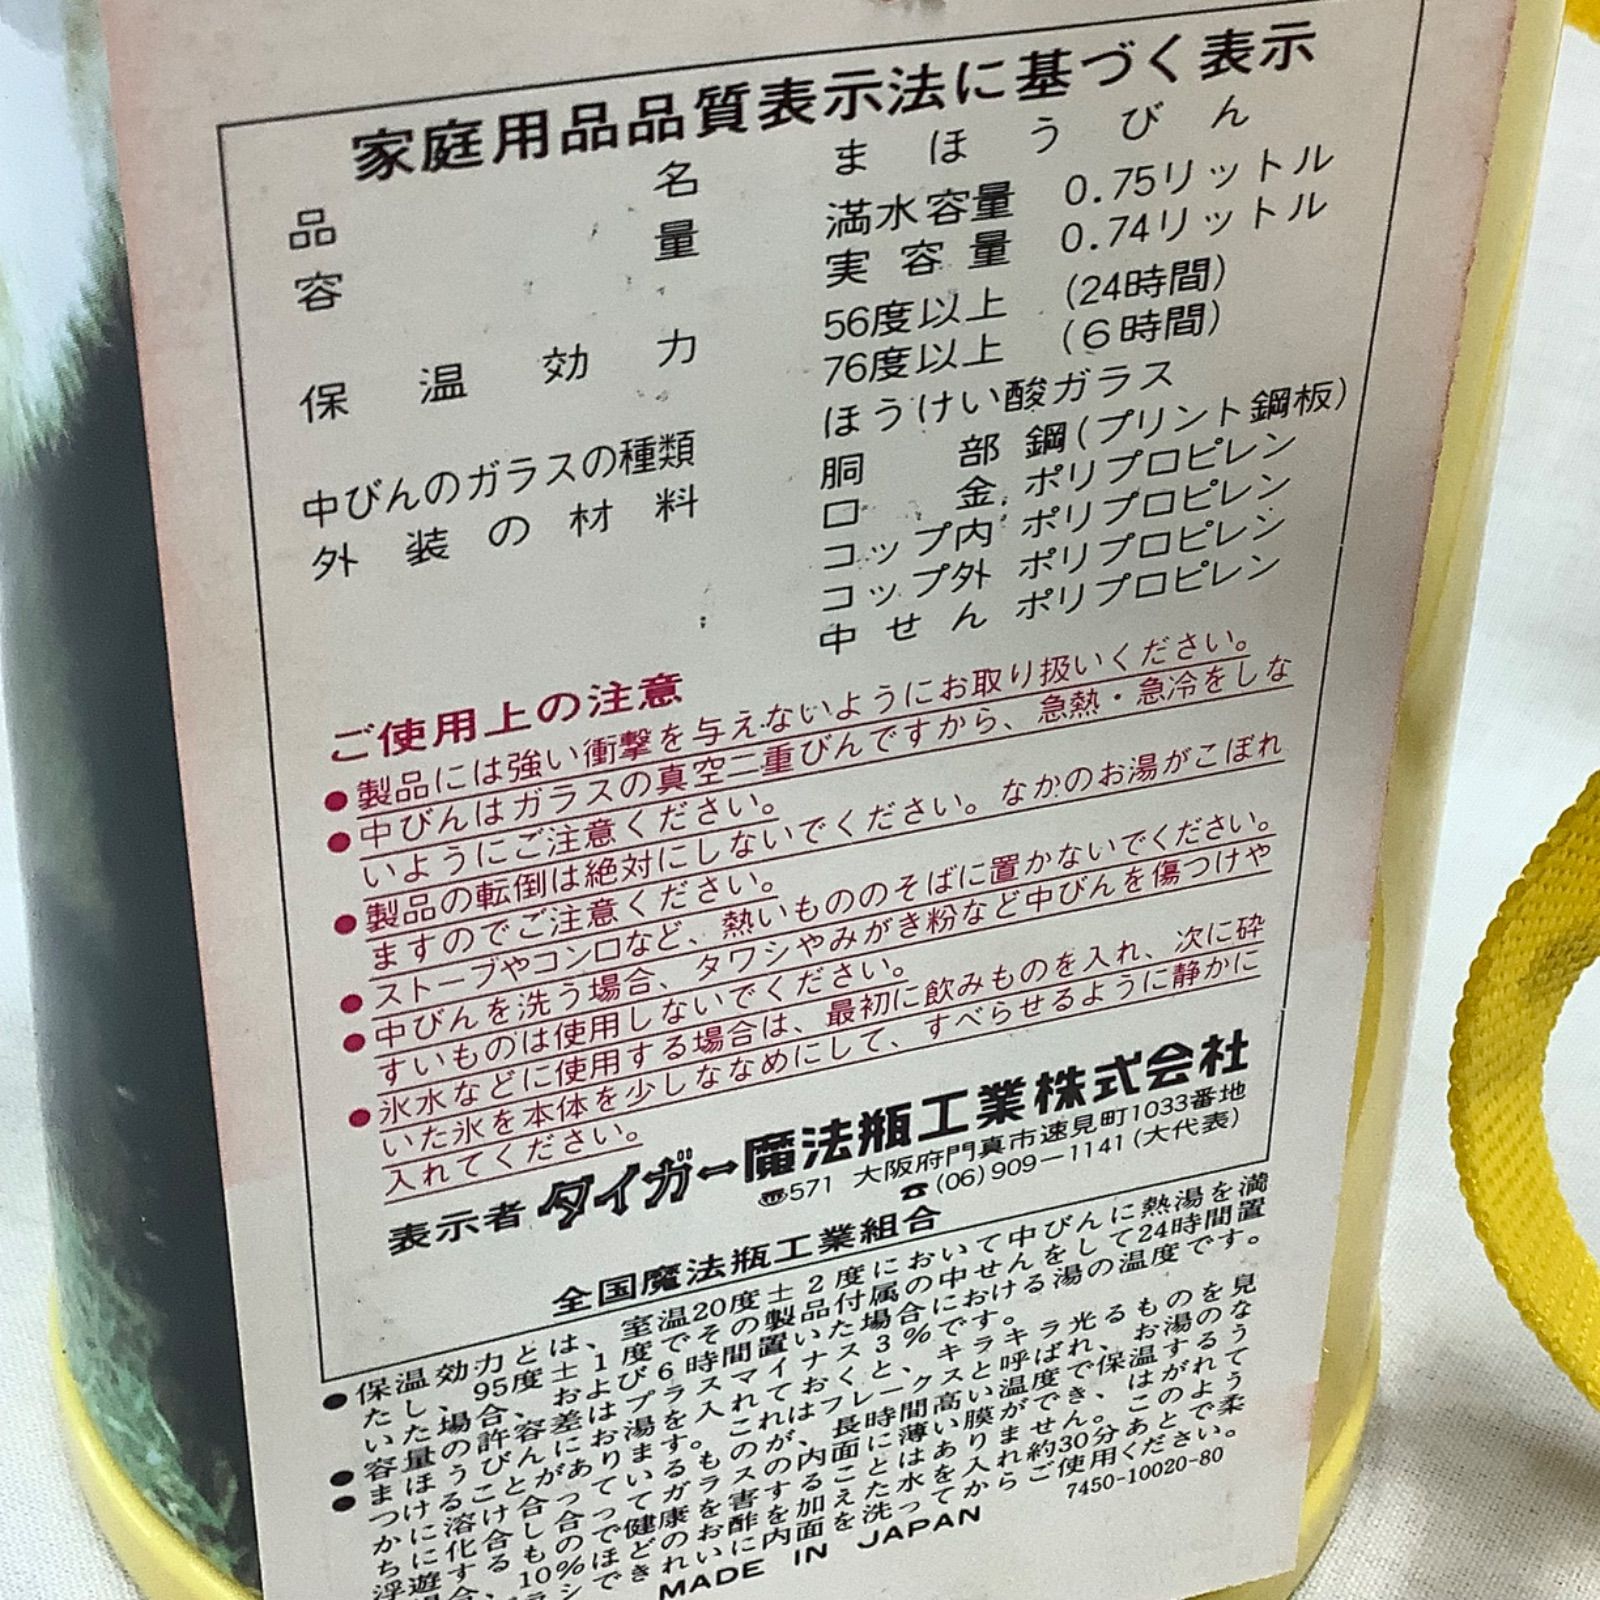 家庭用品品質表示法に基づく表示
品名 まほうびん
容量 満水容量 0.75リットル
実容量 0.74リットル
保温効力 56度以上 (24時間)
76度以上 (6時間)
中びんのガラスの種類 ほうけい酸ガラス
外装の材料 胴部 鋼(プリント鋼板)
口金 ポリプロピレン
コップ内 ポリプロピレン
コップ外 ポリプロピレン
中せん ポリプロピレン
ご使用上の注意
●製品には強い衝撃を与えないようにお取り扱いください。
●中びんはガラスの真空二重びんですから、急熱・急冷をしな
いようにご注意ください。
●製品の転倒は絶対にしないでください。なかのお湯がこぼれ
ますのでご注意ください。
●ストーブやコンロなど、熱いもののそばに置かないでください。
●中びんを洗う場合、タワシやみがき粉など中びんを傷つけや
すいものは使用しないでください。
●氷水などに使用する場合は、最初に飲みものを入れ、次に砕
いた氷を本体を少しななめにして、すべらせるように静かに
入れてください。
表示者 タイガー魔法瓶工業株式会社
〠571 大阪府門真市速見町1033番地
☎(06)909-1141(大代表)
全国魔法瓶工業組合
●保温効力とは、室温20度±2度において中びんに熱湯を満
たし、95度±1度でその製品付属の中せんをして24時間置
いた場合、および6時間置いた場合における湯の温度です。
●容量の許容差はプラスマイナス3%です。
●まほうびんにお湯を入れておくと、キラキラ光るものを見
つけることがあります。これはフレークスと呼ばれ、お湯のな
かに溶け合っているものが、長時間高い温度で保温するう
ちに化合してガラスの内面に薄い膜ができ、はがれて
浮遊するもので健康を害することはありません。このよう
10%ほどのお酢を加えた水を入れ約30分あとで柔
できれいに内面を洗ってからご使用ください。
7450-10020-80
MADE IN JAPAN